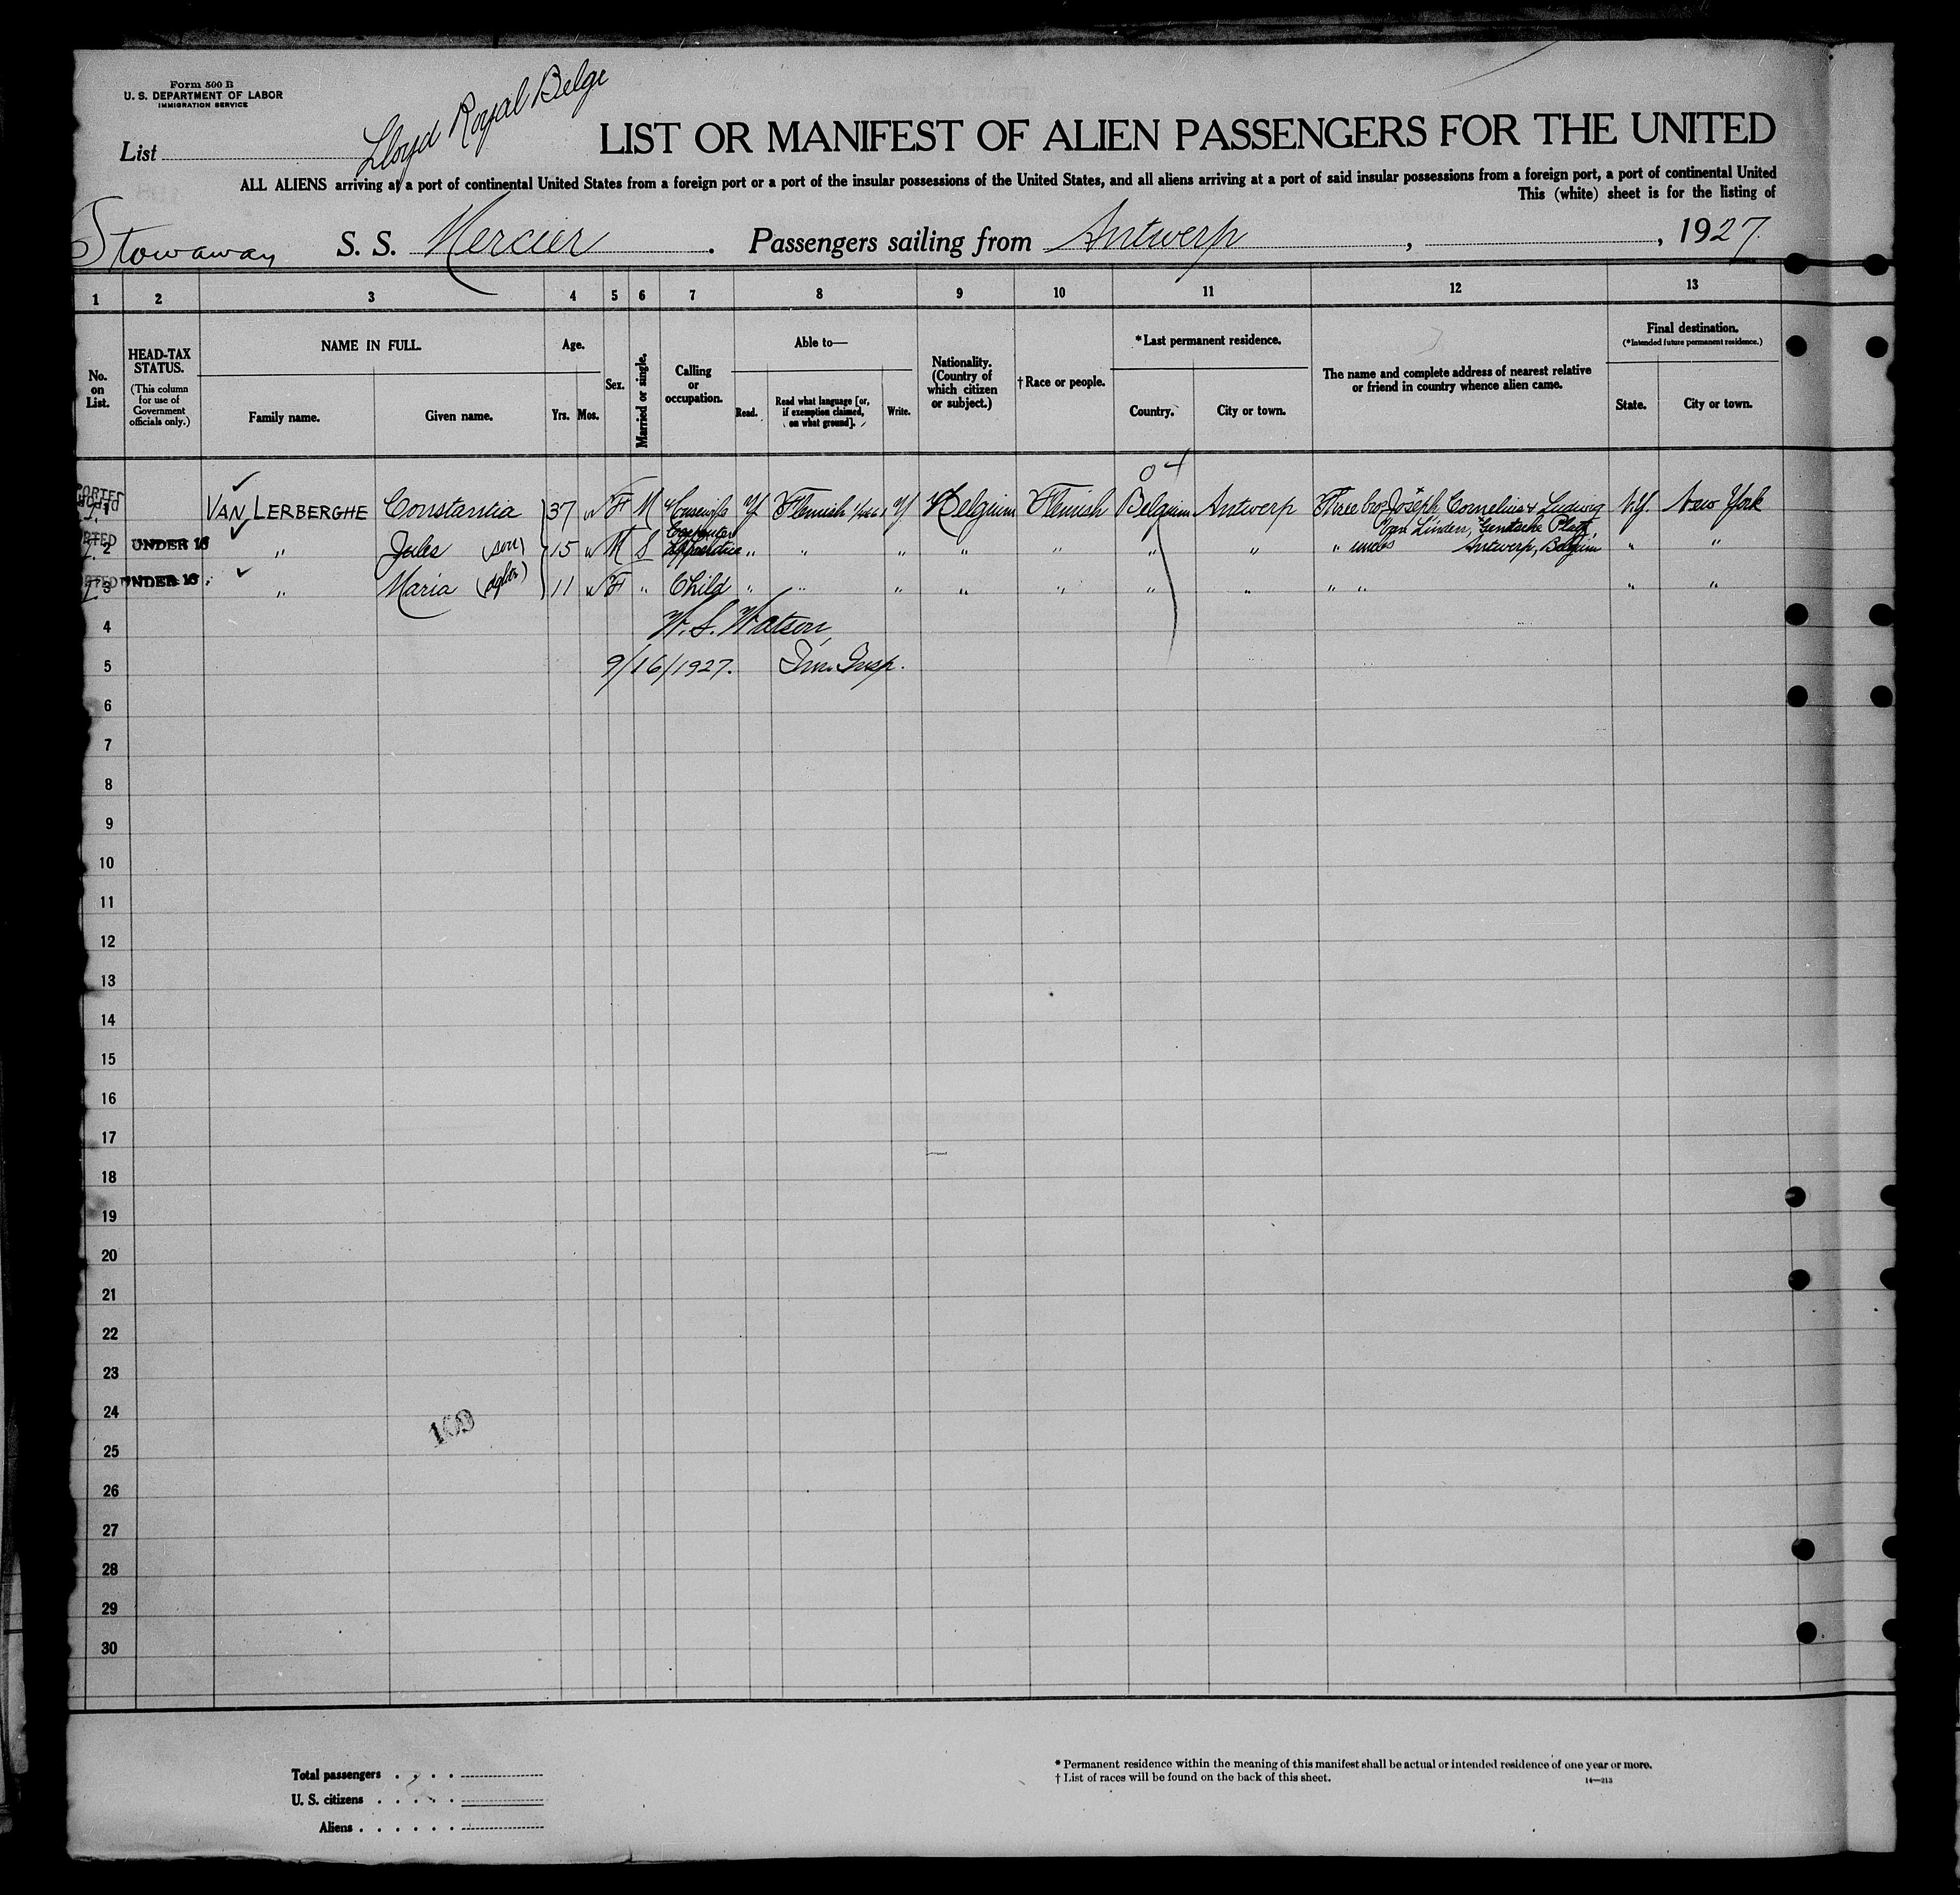 Form 500 B
U. S. DEPARTMENT OF LABOR
IMMIGRATION SERVICE
List
Lloyd Royal Belge
LIST OR MANIFEST OF ALIEN PASSENGERS FOR THE UNITED
ALL ALIENS arriving at a port of continental United States from a foreign port or a port of the insular possessions of the United States, and all aliens arriving at a port of said insular possessions from a foreign port, a port of continental United
This (white) sheet is for the listing of
Stowaway S. S. Mercier . Passengers sailing from Antwerp , , 1927
1 2 3 4 5 6 7 8 9 10 11 12 13
No. on List.
HEAD-TAX STATUS.
(This column for use of Government officials only.)
NAME IN FULL.
Family name. Given name.
Age.
Yrs. Mos.
Sex.
Married or single.
Calling or occupation.
Able to—
Read. Read what language [or, if exemption claimed, on what ground]. Write.
Nationality. (Country of which citizen or subject.)
† Race or people.
* Last permanent residence.
Country. City or town.
The name and complete address of nearest relative or friend in country whence alien came.
Final destination.
(* Intended future permanent residence.)
State. City or town.
1 VAN LERBERGHE Constantia 37 F M Housewife Y Flemish Y Belgium Flemish Belgium Antwerp Three bro. Joseph, Cornelius & Ludwig N.Y. New York
Van Linden,
2 UNDER 16 " Jules (son) 15 M S Carpenter Apprentice " " " " " " " " uncles Antwerp, Belgium " "
3 UNDER 16 " Maria (dghtr) 11 F " Child " " " " " " " " " " "
4 W. S. Watson,
5 9/16/1927. Imm. Insp.
6
7
8
9
10
11
12
13
14
15
16
17
18
19
20
21
22
23
24
25
26
27
28
29
30
109
Total passengers
U. S. citizens
Aliens
* Permanent residence within the meaning of this manifest shall be actual or intended residence of one year or more.
† List of races will be found on the back of this sheet.
14—213